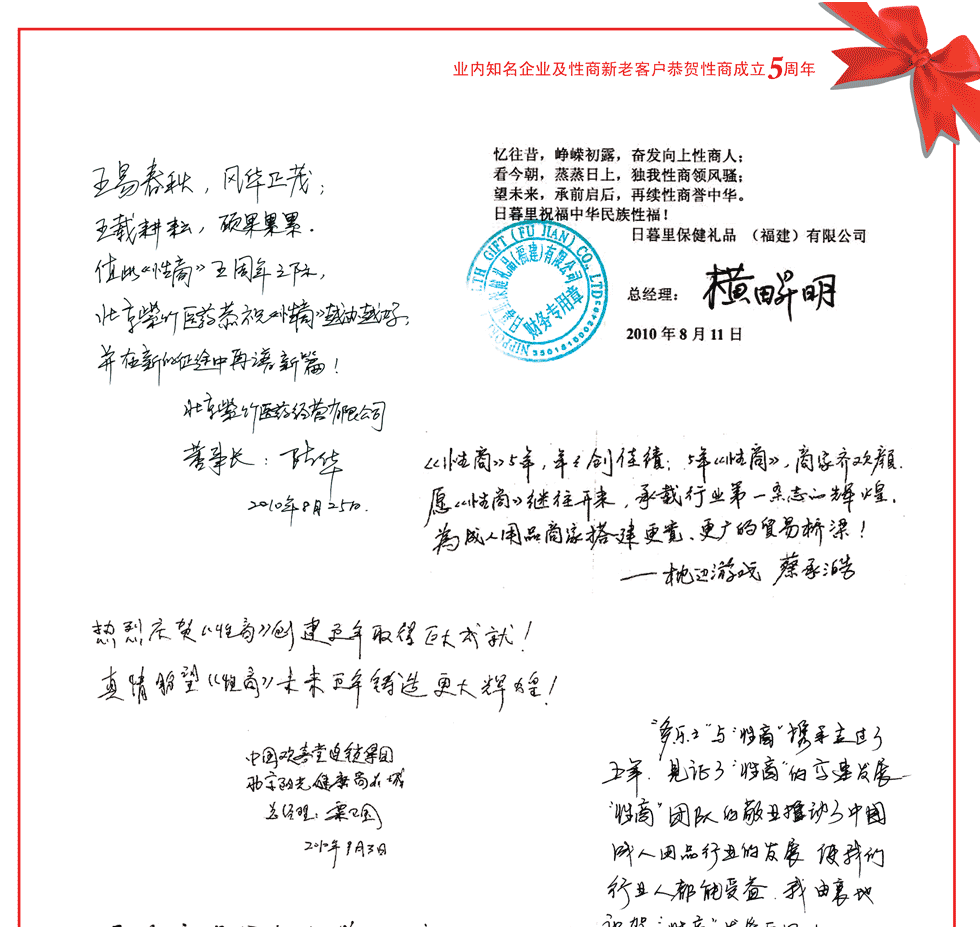 业内知名企业及性商新老客户恭贺性商成立5周年
五易春秋，风华正茂；
五载耕耘，硕果累累．
值此《性商》五周年之际，
北京紫竹医药恭祝《性商》越油越好，
并在新的征途中再谱新篇！
北京紫竹医药经营有限公司
董事长：陆华
2010年8月25日．
忆往昔，峥嵘初露，奋发向上性商人；
看今朝，蒸蒸日上，独我性商领风骚；
望未来，承前启后，再续性商誉中华。
日暮里祝福中华民族性福！
日暮里保健礼品 （福建）有限公司
总经理： 横田昇明
2010 年 8 月 11 日
GIFT (FU JIAN) CO., LTD
礼品(福建)有限公司
财务专用章
《性商》5年，年年创佳绩；5年《性商》，商家齐欢颜．
愿《性商》继往开来，承载行业第一杂志的辉煌，
為成人用品商家搭建更宽、更广的贸易桥梁！
——枕边游戏 蔡承浩
热烈庆贺《性商》创建五年取得巨大成就！
真情盼望《性商》未来五年铸造更大辉煌！
中国欢喜堂连锁集团
北京阳光健康商城
总经理：
2010年9月3日
“多乐士”与“性商”携手走过了
五年．见证了“性商”的高速发展
“性商”团队的敬业推动了中国
成人用品行业的发展 使我们
行业人都能受益．我由衷地